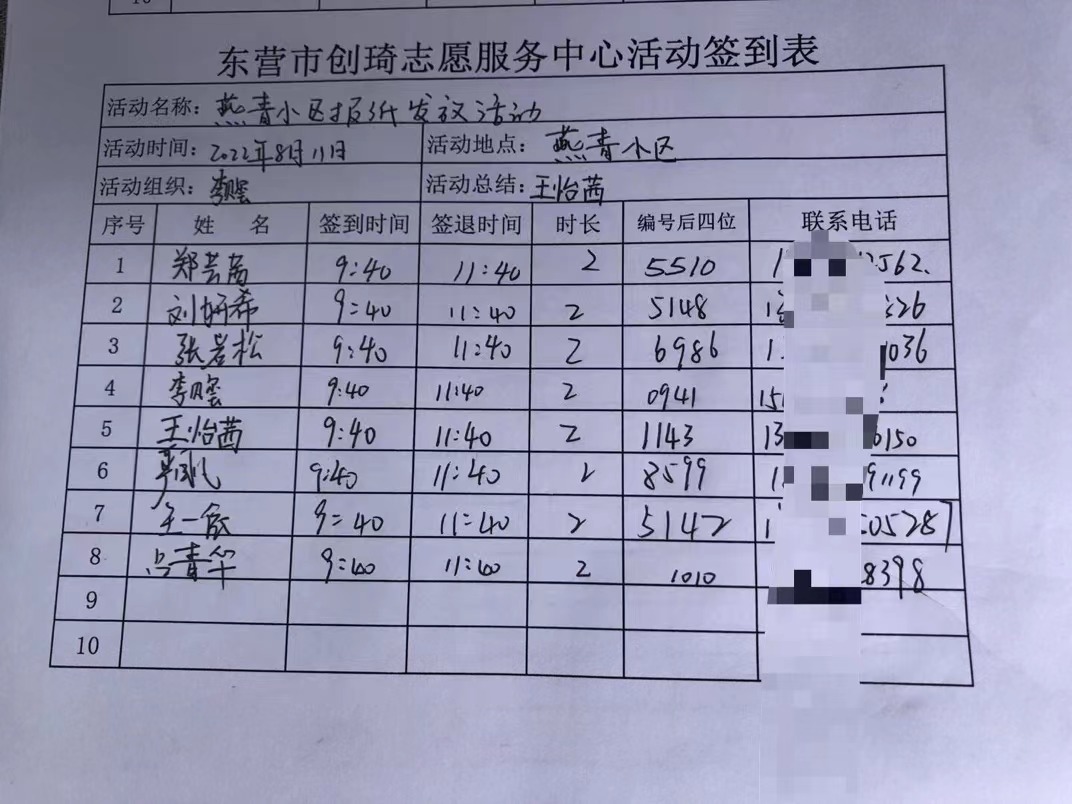 东营市创琦志愿服务中心活动签到表
活动名称：燕青小区报纸发放活动
活动时间：2022年8月11日 活动地点：燕青小区
活动组织：李 活动总结：王怡茜
序号 姓名 签到时间 签退时间 时长 编号后四位 联系电话
1 郑芸 9:40 11:40 2 5510 1 2562
2 刘妍希 9:40 11:40 2 5148 1 326
3 张岩松 9:40 11:40 2 6986 1 036
4 李 9:40 11:40 2 0941 15
5 王怡茜 9:40 11:40 2 1143 13 6150
6 9:40 11:40 2 8599 1 91199
7 王一 9:40 11:40 2 5142 1 505287
8 吕青华 9:40 11:40 2 1010 8398
9
10